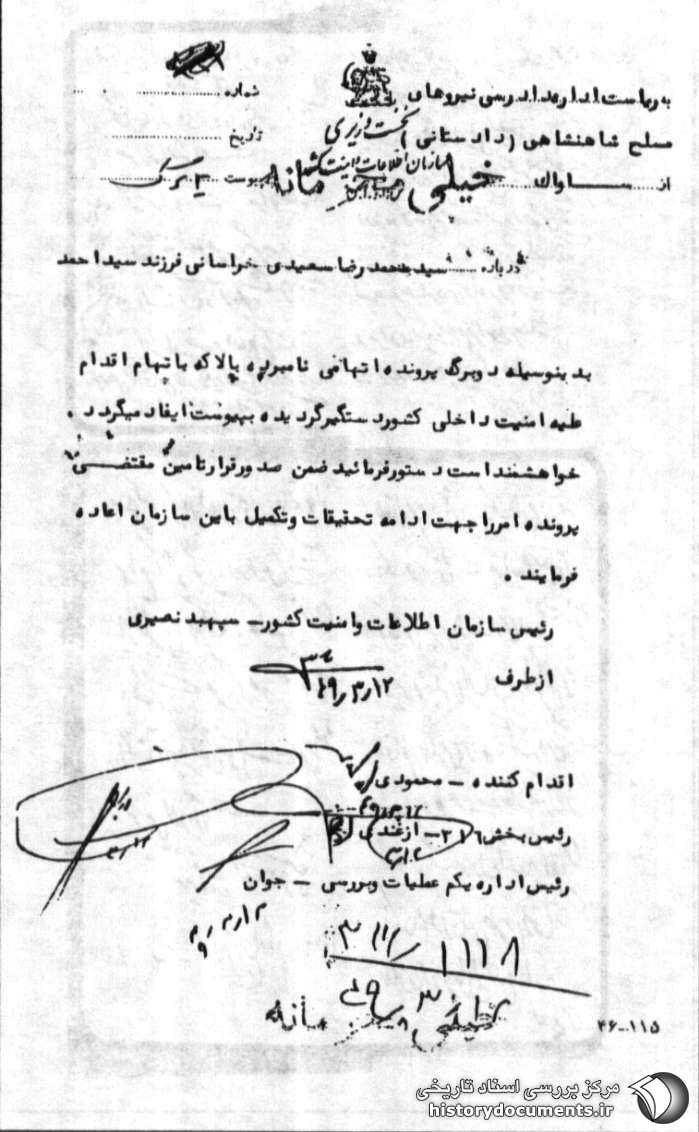 به ریاست اداره دادرسی نیروهای
مسلح شاهنشاهی (دادستانی)
از ساواک
نخست وزیری
سازمان اطلاعات و امنیت کشور
خیلی محرمانه
شماره
تاریخ
پیوست ۲ برگ
درباره سید محمدرضا سعیدی خراسانی فرزند سید احمد
بدینوسیله دوبرگ پرونده اتهامی نامبرده بالا که باتهام اقدام
علیه امنیت داخلی کشور دستگیر گردیده بپیوست ایفاد میگردد.
خواهشمند است دستور فرمائید ضمن صدور قرار تامین مقتضی
پرونده امر را جهت ادامه تحقیقات و تکمیل باین سازمان اعاده
فرمایند.
رئیس سازمان اطلاعات و امنیت کشور – سپهبد نصیری
از طرف
۴۹/۳/۱۲
اقدام کننده – محمودی
رئیس بخش ۳۱۶ – ازغندی
رئیس اداره یکم عملیات و بررسی – جوان
۳۱۶/۱۱۱۸
خیلی محرمانه
۴۶-۱۱۵
مرکز بررسی اسناد تاریخی
historydocuments.ir